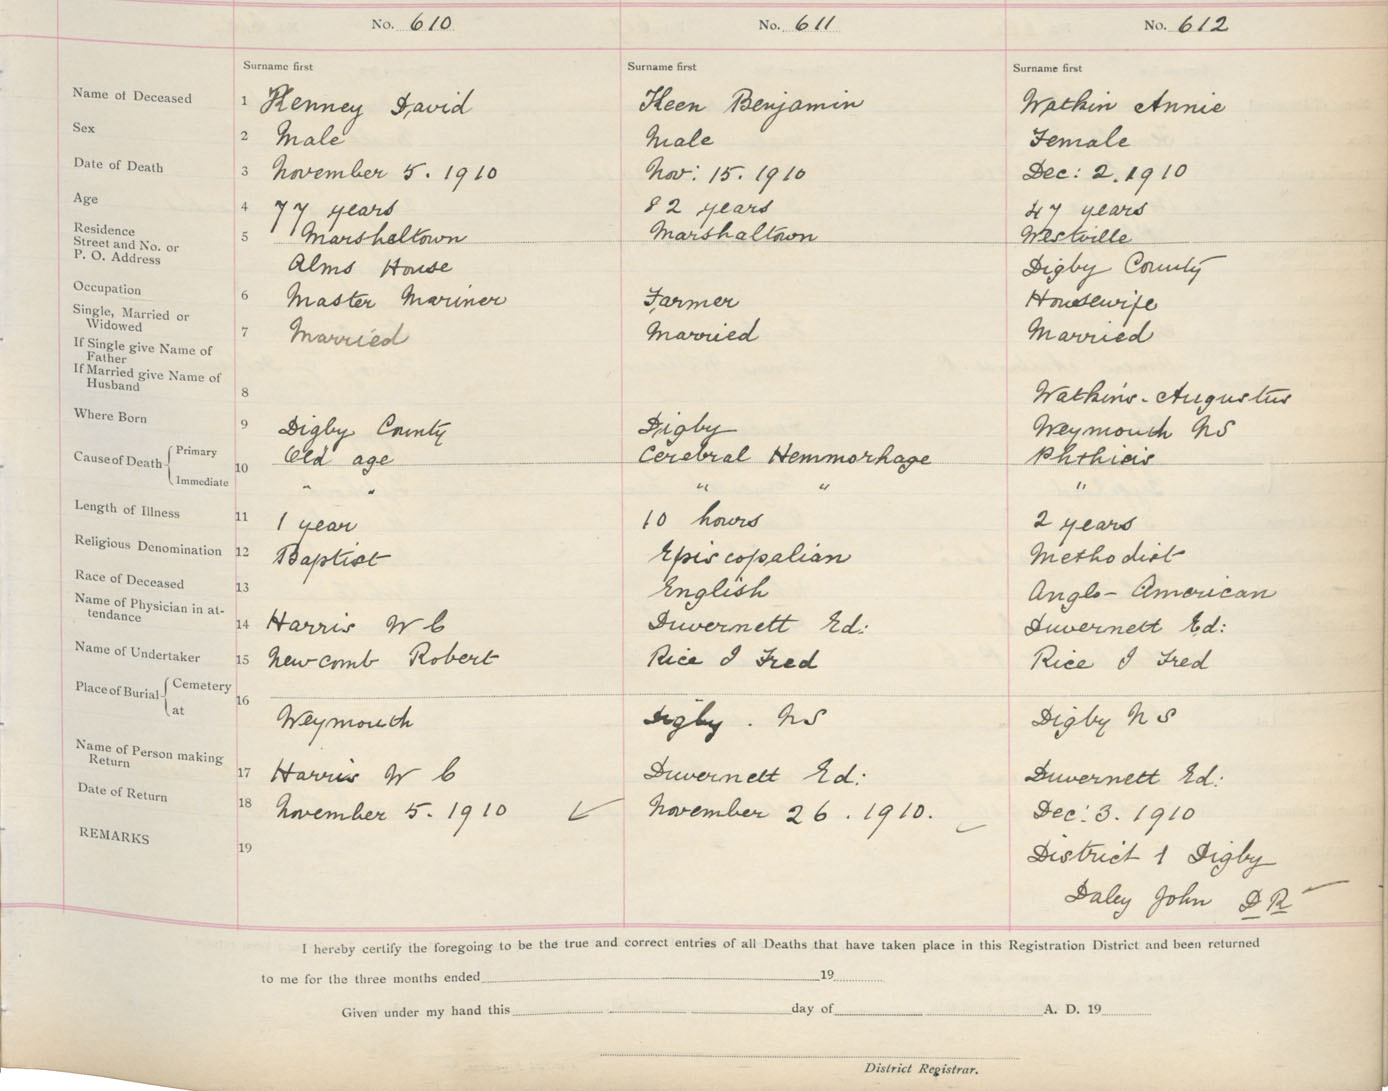 No. 610 No. 611 No. 612
Surname first Surname first Surname first
Name of Deceased 1 Kenney David Keen Benjamin Watkin Annie
Sex 2 Male Male Female
Date of Death 3 November 5. 1910 Nov: 15. 1910 Dec: 2. 1910
Age 4 77 years 82 years 47 years
Residence 5 Marshaltown Marshaltown Westville
Street and No. or
P. O. Address Alms House Digby County
Occupation 6 Master Mariner Farmer Housewife
Single, Married or
Widowed 7 Married Married Married
If Single give Name of
Father
If Married give Name of
Husband 8 Watkins. Augustus
Where Born 9 Digby County Digby Weymouth NS
Cause of Death Primary 10 Old age Cerebral Hemmorhage Phthisis
Immediate " " " " "
Length of Illness 11 1 year 10 hours 2 years
Religious Denomination 12 Baptist Episcopalian Methodist
Race of Deceased 13 English Anglo-American
Name of Physician in at-
tendance 14 Harris W C Duvernett Ed: Duvernett Ed:
Name of Undertaker 15 Newcomb Robert Rice I Fred Rice I Fred
Place of Burial Cemetery 16
at Weymouth Digby. NS Digby NS
Name of Person making
Return 17 Harris W C Duvernett Ed: Duvernett Ed:
Date of Return 18 November 5. 1910 November 26. 1910. Dec: 3. 1910
REMARKS 19 District 1 Digby
Daley John DR
I hereby certify the foregoing to be the true and correct entries of all Deaths that have taken place in this Registration District and been returned
to me for the three months ended 19
Given under my hand this day of A. D. 19
District Registrar.